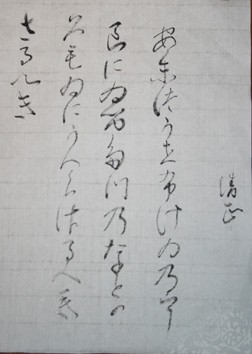 清正
あまつかせふけゐのう
らにゐるたつのなとか
くもゐにかへらさるへき
さるへき